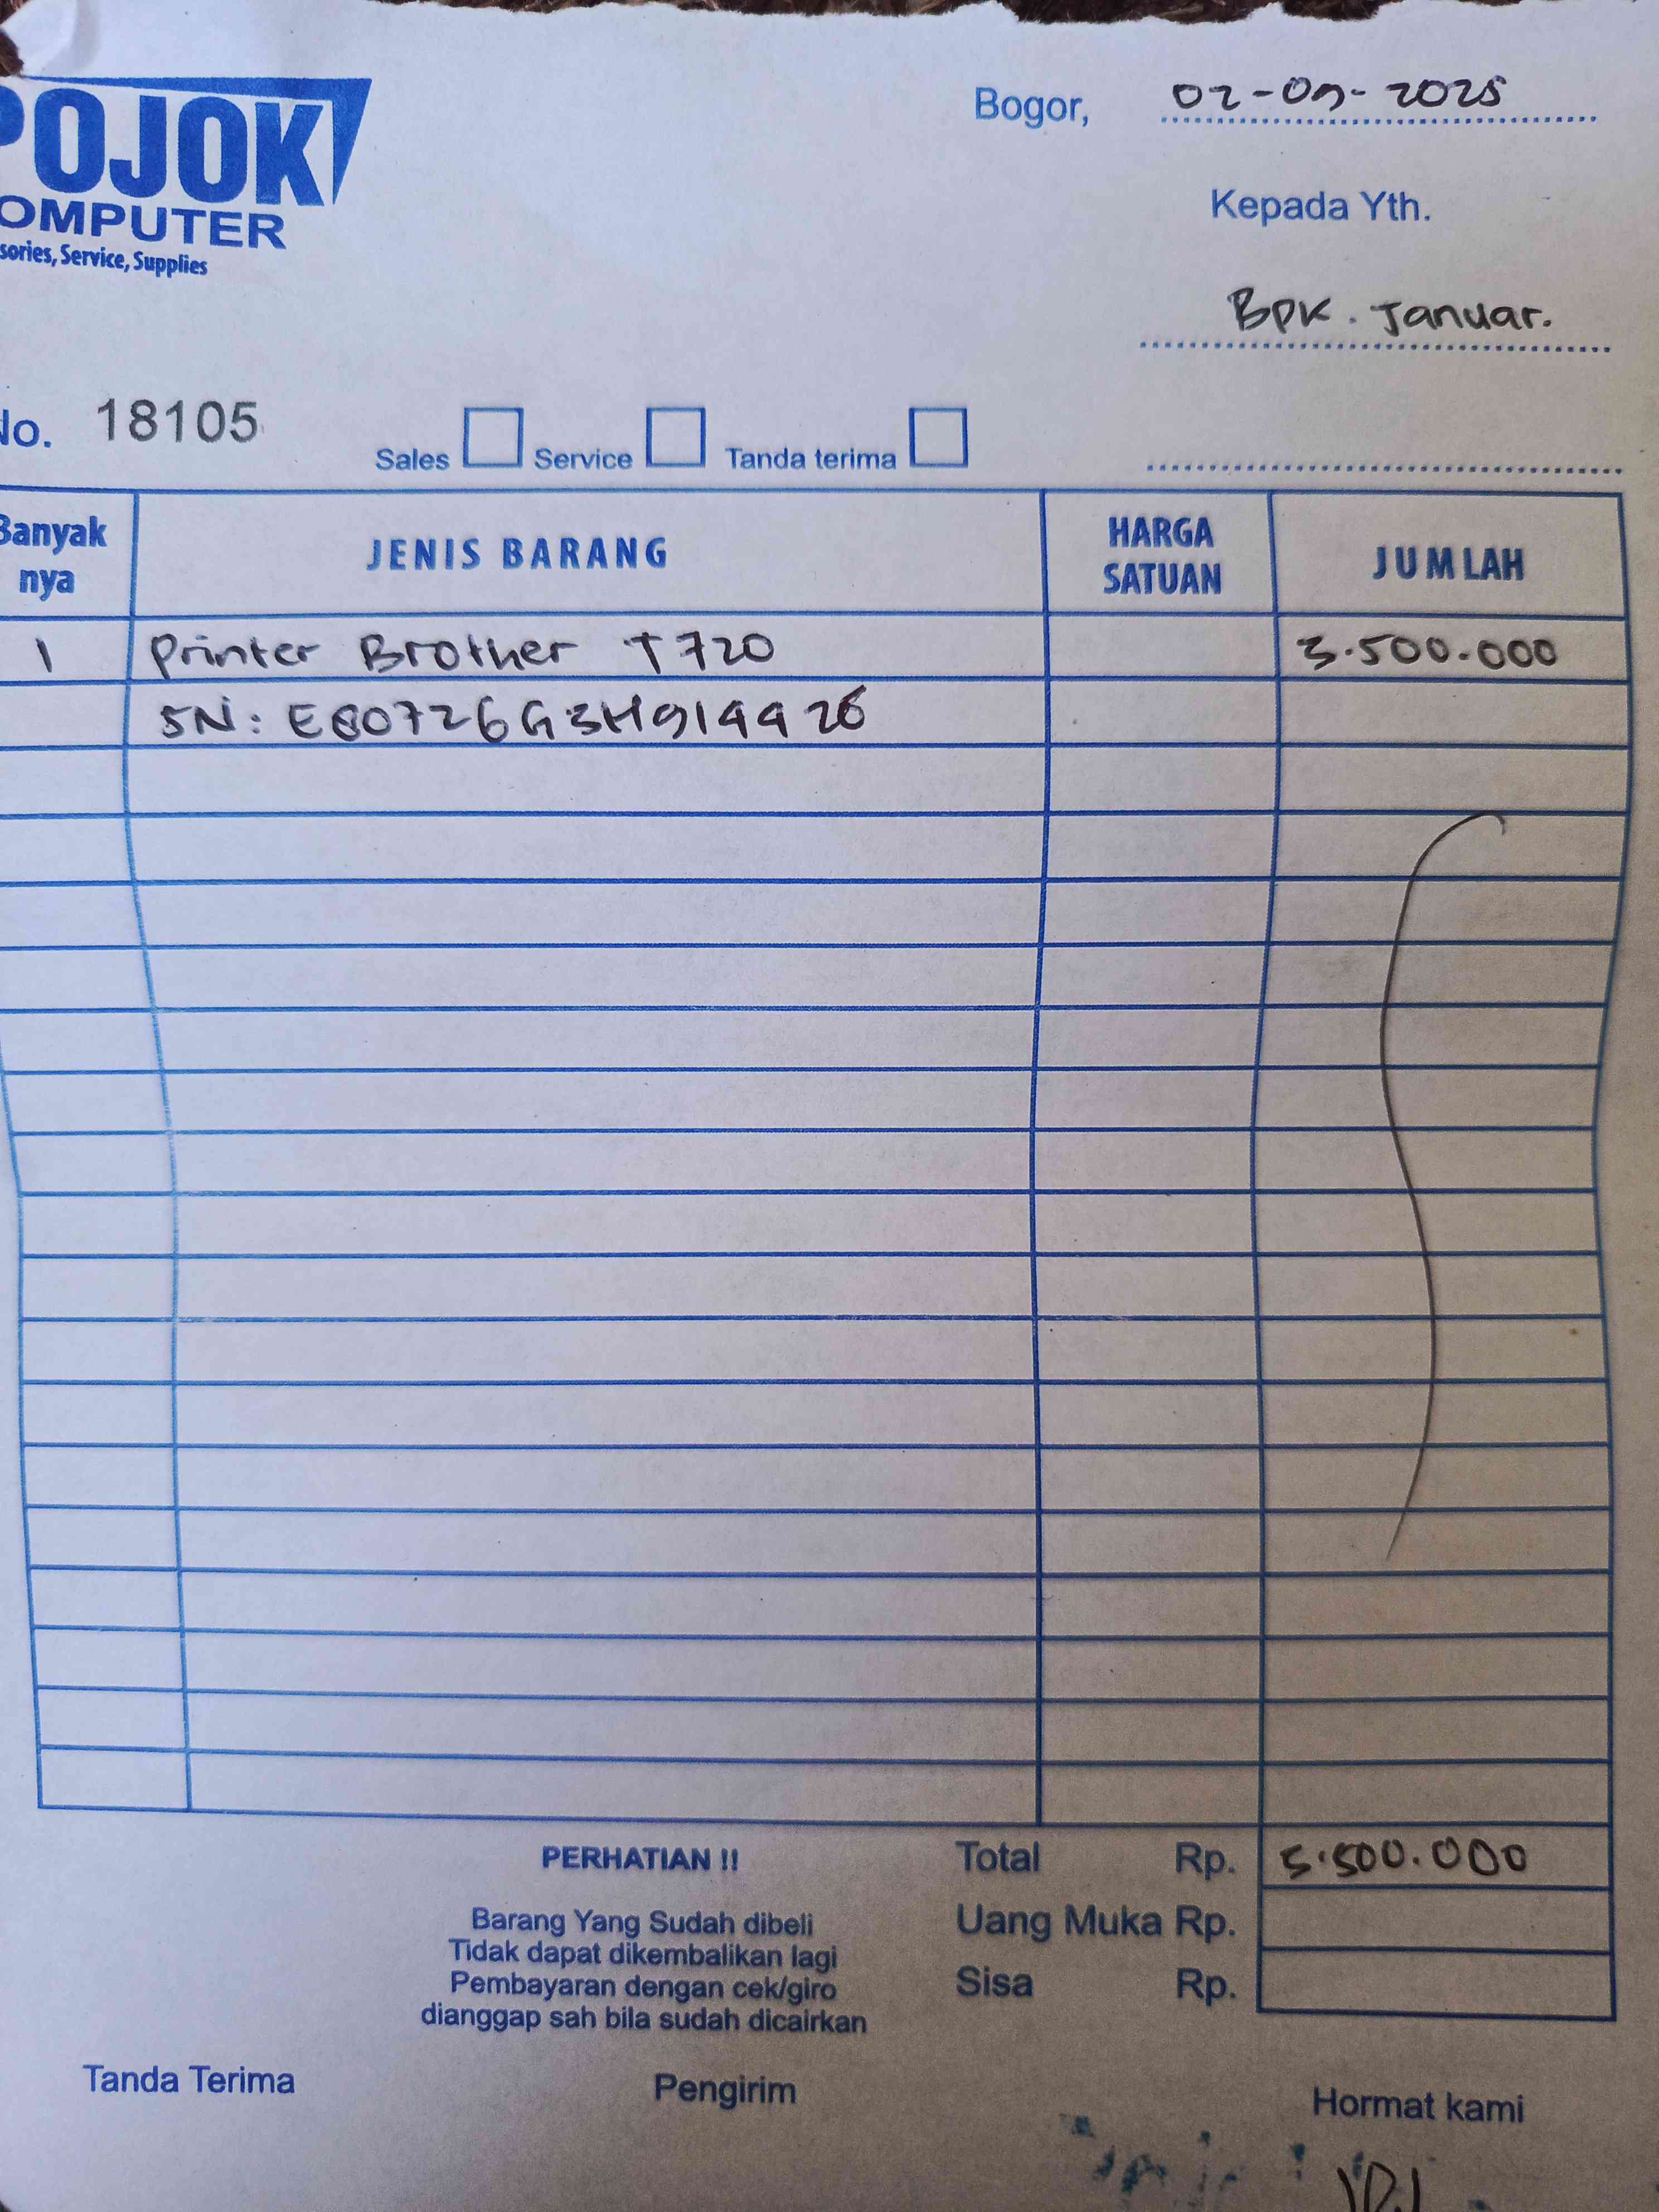 POJOK
OMPUTER
sories, Service, Supplies
Bogor, 02-09-2025
Kepada Yth.
Bpk. Januar.
No. 18105
Sales Service Tanda terima
Banyak nya JENIS BARANG HARGA SATUAN JUMLAH
1 Printer Brother T720 3.500.000
SN: E80726G3H914426
Total Rp. 3.500.000
Uang Muka Rp.
Sisa Rp.
PERHATIAN !!
Barang Yang Sudah dibeli
Tidak dapat dikembalikan lagi
Pembayaran dengan cek/giro
dianggap sah bila sudah dicairkan
Tanda Terima Pengirim Hormat kami